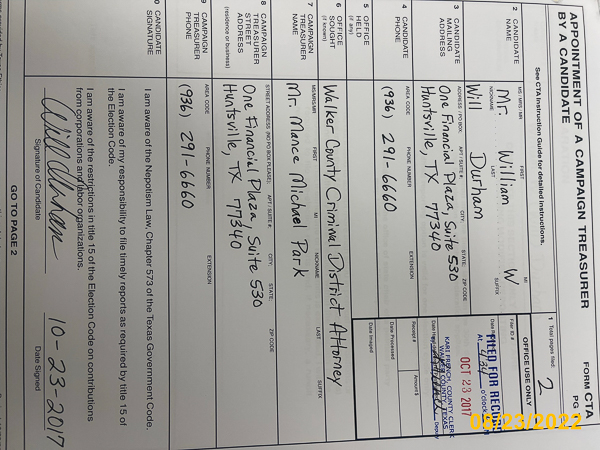 APPOINTMENT OF A CAMPAIGN TREASURER
BY A CANDIDATE
FORM CTA
PG 1
See CTA Instruction Guide for detailed instructions.
1 Total pages filed:
2
2 CANDIDATE
NAME
MS / MRS / MR
FIRST
MI
Mr. William W
NICKNAME
LAST
SUFFIX
Will Durham
OFFICE USE ONLY
Filer ID #
FILED FOR RECORD
At 4:34 o'clock
OCT 23 2017
KARI FRENCH, COUNTY CLERK
WALKER COUNTY, TEXAS
Deputy
3 CANDIDATE
MAILING
ADDRESS
ADDRESS / PO BOX; APT / SUITE #; CITY; STATE; ZIP CODE
One Financial Plaza, Suite 530
Huntsville, TX 77340
4 CANDIDATE
PHONE
AREA CODE
PHONE NUMBER
EXTENSION
(936) 291-6660
Receipt #
Amount $
Date Processed
Date Imaged
5 OFFICE
HELD
(if any)
6 OFFICE
SOUGHT
(if known)
Walker County Criminal District Attorney
7 CAMPAIGN
TREASURER
NAME
MS/MRS/MR
FIRST
MI
NICKNAME
LAST
SUFFIX
Mr. Mance Michael Park
8 CAMPAIGN
TREASURER
STREET
ADDRESS
(residence or business)
STREET ADDRESS (NO PO BOX PLEASE); APT / SUITE #; CITY; STATE; ZIP CODE
One Financial Plaza, Suite 530
Huntsville, TX 77340
9 CAMPAIGN
TREASURER
PHONE
AREA CODE
PHONE NUMBER
EXTENSION
(936) 291-6660
10 CANDIDATE
SIGNATURE
I am aware of the Nepotism Law, Chapter 573 of the Texas Government Code.
I am aware of my responsibility to file timely reports as required by title 15 of
the Election Code.
I am aware of the restrictions in title 15 of the Election Code on contributions
from corporations and labor organizations.
10-23-2017
Signature of Candidate
Date Signed
GO TO PAGE 2
08/23/2022